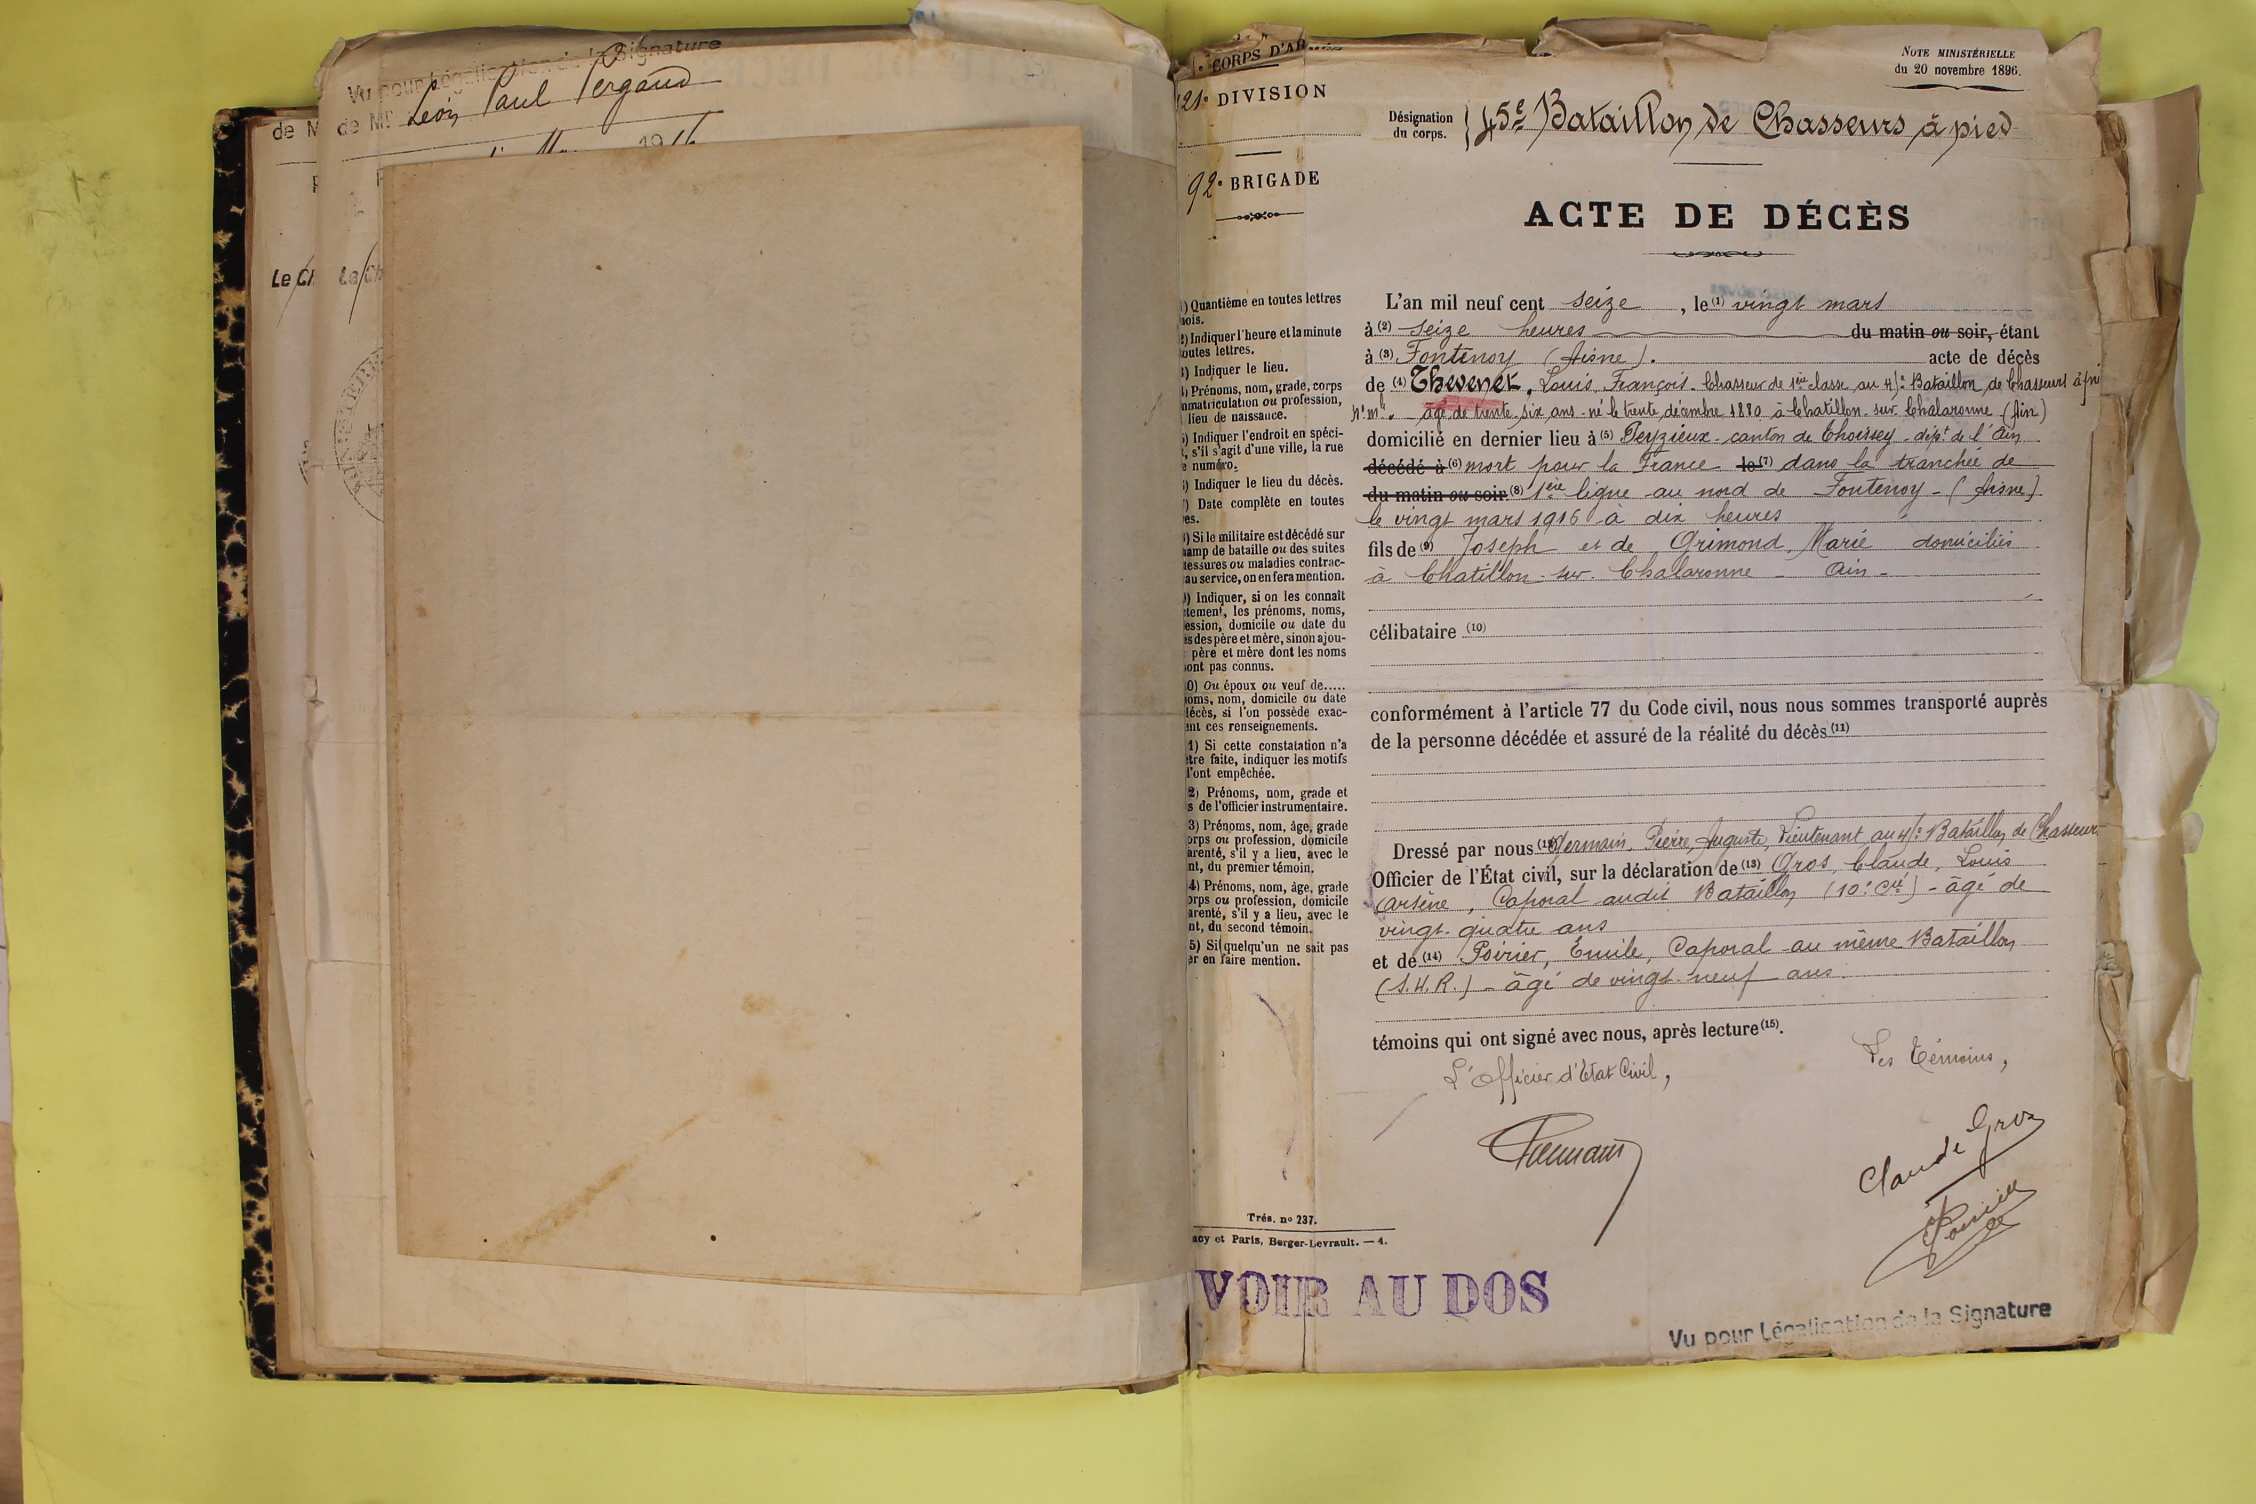 Vu pour Légalisation de la Signature
de M de Mr Léon Paul Pergaud
1916
Le Ch Le Ch
CORPS D'AR
121e DIVISION
92e BRIGADE
NOTE MINISTÉRIELLE
du 20 novembre 1896.
Désignation
du corps.
45e Bataillon de Chasseurs à pied
ACTE DE DÉCÈS
1) Quantième en toutes lettres
mois.
2) Indiquer l'heure et la minute
toutes lettres.
3) Indiquer le lieu.
4) Prénoms, nom, grade, corps
immatriculation ou profession,
lieu de naissance.
5) Indiquer l'endroit en spéci-
t, s'il s'agit d'une ville, la rue
e numéro.
6) Indiquer le lieu du décès.
7) Date complète en toutes
res.
8) Si le militaire est décédé sur
hamp de bataille ou des suites
lessures ou maladies contrac-
au service, on en fera mention.
9) Indiquer, si on les connaît
tement, les prénoms, noms,
ession, domicile ou date du
ès des père et mère, sinon ajou-
: père et mère dont les noms
sont pas connus.
10) Ou époux ou veuf de.....
noms, nom, domicile ou date
décès, si l'on possède exac-
ent ces renseignements.
11) Si cette constatation n'a
être faite, indiquer les motifs
l'ont empêchée.
12) Prénoms, nom, grade et
s de l'officier instrumentaire.
13) Prénoms, nom, âge, grade
orps ou profession, domicile
arenté, s'il y a lieu, avec le
nt, du premier témoin.
14) Prénoms, nom, âge, grade
orps ou profession, domicile
arenté, s'il y a lieu, avec le
nt, du second témoin.
15) Si quelqu'un ne sait pas
er en faire mention.
L'an mil neuf cent seize, le (1) vingt mars
à (2) seize heures du matin ou soir, étant
à (3) Fontenoy (Aisne). acte de décès
de (4) Thevenet, Louis, François. Chasseur de 1ère classe au 45e Bataillon de Chasseurs à pied
No ml. âgé de trente six ans - né le trente décembre 1880 à Chatillon-sur-Chalaronne (Ain)
domicilié en dernier lieu à (5) Peyzieux - canton de Thoissey - dépt de l'Ain
décédé à (6) mort pour la France le (7) dans la tranchée de
du matin ou soir (8) 1ère ligne au nord de Fontenoy - (Aisne)
le vingt mars 1916 à dix heures
fils de (9) Joseph et de Grimond, Marie domiciliés
à Chatillon-sur-Chalaronne - Ain -
célibataire (10)
conformément à l'article 77 du Code civil, nous nous sommes transporté auprès
de la personne décédée et assuré de la réalité du décès (11)
Dressé par nous (12) Germain, Pierre, Auguste, Lieutenant au 45e Bataillon de Chasseurs
Officier de l'État civil, sur la déclaration de (13) Gros, Claude, Louis
Arsène, Caporal audit Bataillon (10e Cie) - âgé de
vingt-quatre ans
et de (14) Poirier, Emile, Caporal au même Bataillon
(S.H.R.) - âgé de vingt-neuf ans
témoins qui ont signé avec nous, après lecture (15).
L'Officier d'Etat Civil,
Les Témoins,
Germain
Claude Gros
Poirier
Trés. no 237.
ncy et Paris, Berger-Levrault. — 4.
VOIR AU DOS
Vu pour Légalisation de la Signature